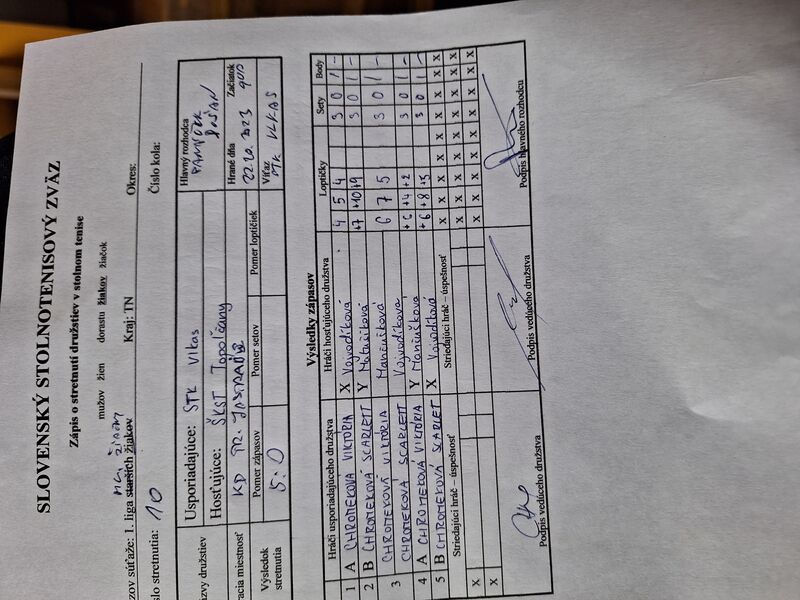 SLOVENSKÝ STOLNOTENISOVÝ ZVÄZ
Zápis o stretnutí družstiev v stolnom tenise
mužov žien dorastu žiakov žiačok
ml. žiaky
zov súťaže: 1. liga starších žiakov Kraj: TN Okres:
slo stretnutia: 10 Číslo kola:
zvy družstiev Usporiadajúce: STK Vlkas Hlavný rozhodca
Hosťujúce: ŠKST Topoľčany DUŠAN
racia miestnosť KD Hrané dňa 22.10.2023 Začiatok 900
Výsledok stretnutia Pomer zápasov 5:0 Pomer setov Pomer loptičiek Víťaz
Výsledky zápasov
Hráči usporiadajúceho družstva Hráči hosťujúceho družstva Loptičky Sety Body
1 A CHROMEKOVÁ VIKTÓRIA X Vojvodíková 4 5 4 3 0 1 -
2 B CHROMEKOVÁ SCARLETT Y +7 +10 +9 3 0 1 -
3 CHROMEKOVÁ VIKTÓRIA Mančušková 6 7 5 3 0 1 -
CHROMEKOVÁ SCARLETT Vojvodíková
4 A CHROMEKOVÁ VIKTÓRIA Y Mančušková +6 +4 +2 3 0 1 -
5 B CHROMEKOVÁ SCARLET X Vojvodíková +6 +8 +5 3 0 1 -
Striedajúci hráč – úspešnosť Striedajúci hráč – úspešnosť X X X X X X X X X
X X X X X X X X X X
X X X X X X X X X X
Podpis vedúceho družstva Podpis vedúceho družstva Podpis hlavného rozhodcu